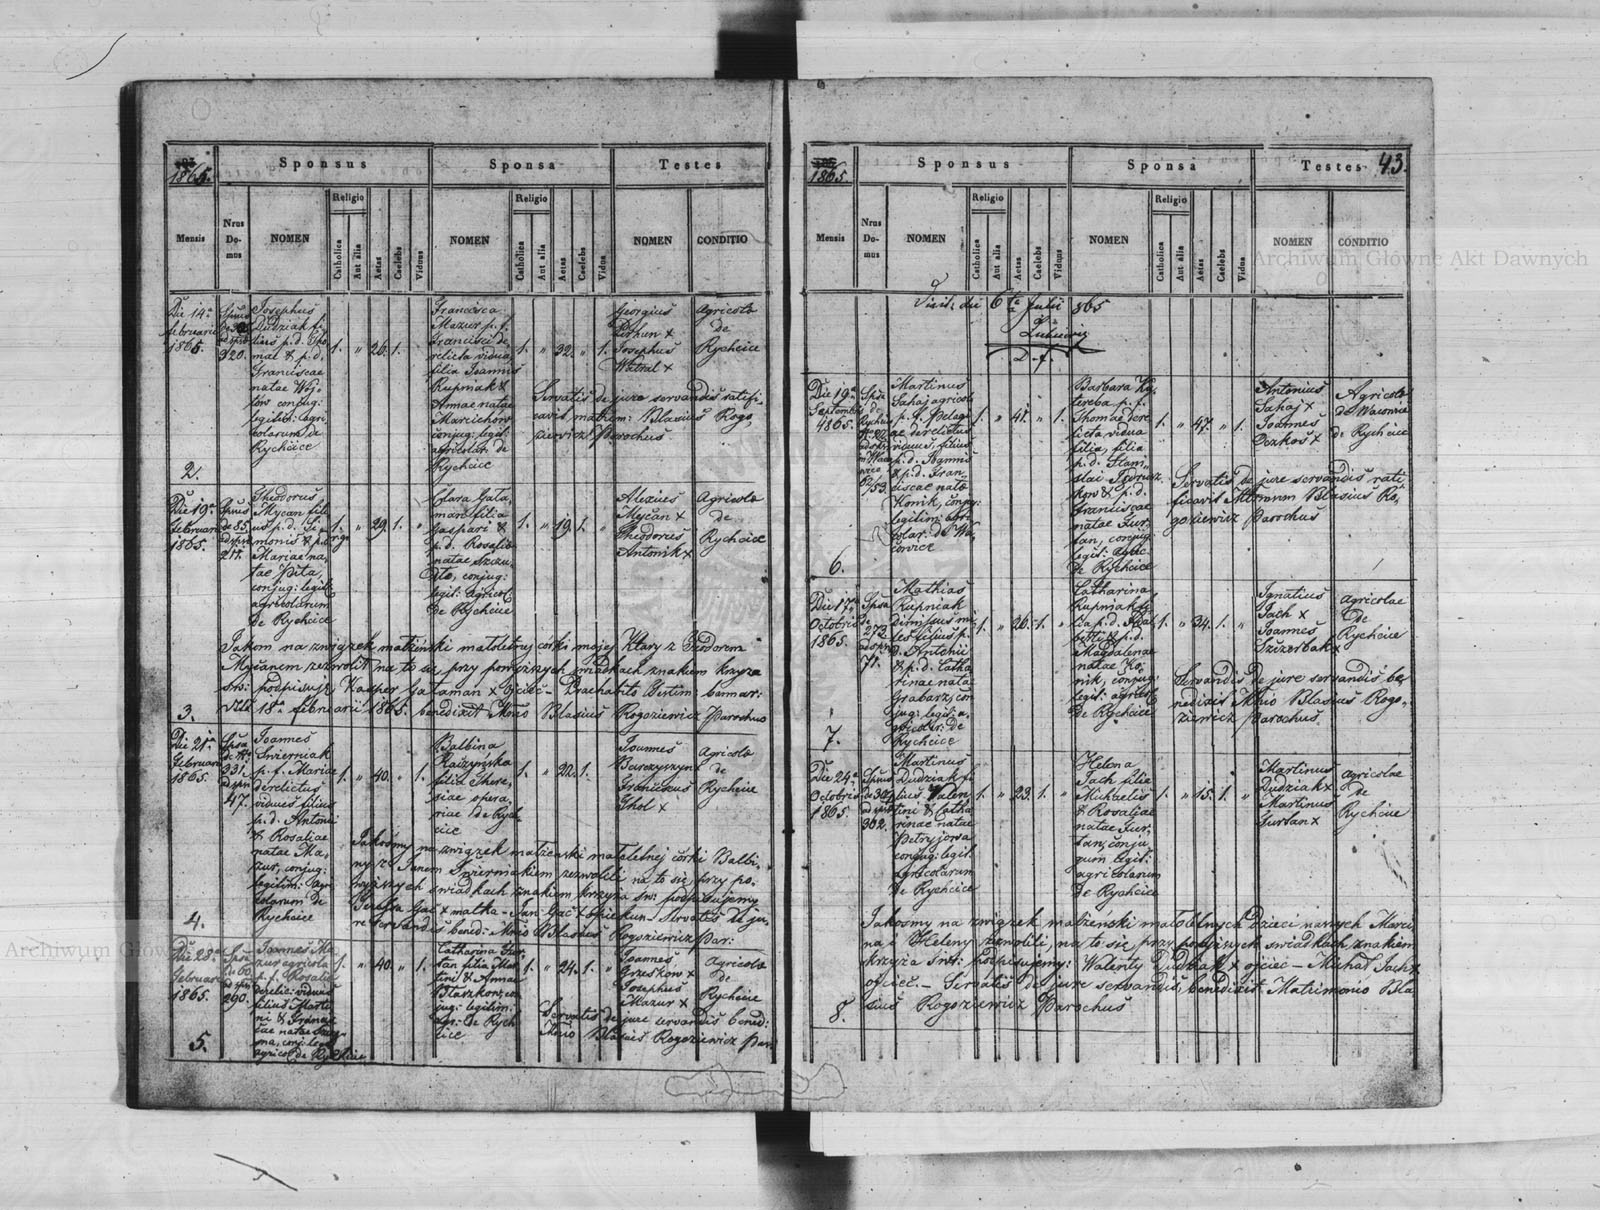 1865.
Sponsus
Sponsa
Testes
Mensis
Nrus Do-mus
NOMEN
Religio
Catholica
Aut alia
Aetas
Caelebs
Viduus
NOMEN
Religio
Catholica
Aut alia
Aetas
Caelebs
Vidua
NOMEN
CONDITIO
Die 14a
februarii
1865.
2.
320.
Josephus
Dudziak fi
lius p.d. Tho
mae & p.d.
Franciscae
natae Woj
tow conjug:
legitim: agri
colarum de
Rychcice
1.
"
26.
1.
Francisca
Mazur p.f.
Francisci de
relicta vidua,
filia Joannis
Rupniak &
Annae natae
Marcichow
conjug: legit:
agricolar: de
Rychcice
1.
"
32.
"
1.
Georgius
Josephus
Watral x
Agricolae
de
Rychcice
Servatis de jure servandis ratifi
cavit matrim: Blasius Rogo
ziewicz Parochus
Die 19a
Februarii
1865.
3.
Spsus
de 85.
ad spsa
217.
Theodorus
Mycan fili
us p.d. Si
monis & p.d.
Mariae na
tae Pita,
conjug: legit:
agricolarum
de Rychcice
1.
"
29.
1.
Clara Gala
man filia
Gaspari &
p.d. Rosaliae
natae Szczu
conjug:
legit: agricol:
de Rychcice
1.
"
19.
1.
Alexius
Mycan x
Theodorus
Antonik x
Agricolae
de
Rychcice
Jakom na związek małżeński małoletniej córki mojej Klary z Teodorem
Mycanem zezwolił na to się przy powyższych świadkach znakiem krzyża
św: podpisuję Kasper Galaman x ojciec –
18a februarii 1865. benedixit Mnio Blasius Rogoziewicz Parochus
Die 21a
Februarii
1865.
4.
Spsa
331.
ad spsi
47.
Joannes
Swierniak
p.f. Mariae
derelictus
viduus filius
p.d. Antonii
& Rosaliae
natae Ma
zur, conjug:
legitim: agri
colarum de
Rychcice
1.
"
40.
"
1.
Balbina
Raczynska
filia There
siae opera
riae de Rych
cice
1.
"
22.
1.
Joannes
Barczyszyn
Franciscus
Ghol x
Agricolae
de
Rychcice
Jakośmy na związek małżeński małoletniej córki Balbi
ny z Janem Swierniakiem zezwolili na to się przy po
wyższych świadkach znakiem krzyża św: podpisujemy
Teresa Gać x matka – Jan Gać x opiekun – Servatis de ju
re servandis bened: Mnio Blasius Rogoziewicz Par:
Die 28a
Februarii
1865.
5.
Spsa
60.
ad spsi
290.
Joannes Ma
zur agricola
p.f. Rosaliae
derelic: viduus
filius Marti
ni & Francis
cae natae
conj: legit:
agricol: de Rychcice
1.
"
40.
"
1.
Catharina Fur
tan filia Mar
tini & Annae
Blazkow, con
jug: legitim:
agr: de Rych
cice
1.
"
24.
1.
"
Joannes
Grzeskow x
Josephus
Mazur x
Agricolae
de
Rychcice
Servatis de jure servandis bened:
Mnio Blasius Rogoziewicz Par:
1865.
Sponsus
Sponsa
Testes
43.
Mensis
Nrus Do-mus
NOMEN
Religio
Catholica
Aut alia
Aetas
Caelebs
Viduus
NOMEN
Religio
Catholica
Aut alia
Aetas
Caelebs
Vidua
NOMEN
CONDITIO
Visit: die 6ta Julii 865
D.f.
Die 19a
Septembris
1865.
6.
Spsa
de
Rychcice
62/53
Martinus
Sahaj agricola
p.f. Pelagi
ae derelictus
viduus, filius
p.d. Joannis
& p.d. Fran
ciscae natae
Kornik, conjug:
legitim: agri
colar: de Wa
cowice
1.
"
41.
"
1.
Barbara Ko
tereba p.f.
Thomae dere
licta vidua
filia, filia
p.d. Stani
slai Fedrucz
kow & p.d.
Franciscae
natae Fur
tan, conjug:
legit: agric:
de Rychcice
1.
"
47.
"
1.
Antonius
Sahaj x
Joannes
Oczkos x
Agricolae
de Wacowice
de Rychcice
Servatis de jure servandis rati
ficavit Mtrimonium Blasius Ro
goziewicz Parochus
Die 17a
Octobris
1865.
7.
Spsa
de
272
ad spsi
71.
Mathias
Rupniak
dimissus mi
les filius p.
d. Antonii
& p.d. Catha
rinae nata
Grabarz, con
jug: legit: a
gricolar: de
Rychcice
1.
"
26.
1.
"
Catharina
Rupniak fi
lia p.d. Adal
berti & p.d.
Magdalenae
natae Ko
nik, conjug:
legit: agricol:
de Rychcice
1.
"
34.
1.
"
Ignatius
Jach x
Joannes
Szizerbak x
Agricolae
de
Rychcice
Servandis de jure servandis be
nedixit Mnio Blasius Rogo
ziewicz Parochus.
Die 24a
Octobris
1865.
8.
Spsus
de 304
ad spsa
302.
Martinus
Dudziak fi
lius Valen
tini & Catha
rinae natae
Petryjowa
conjug: legit:
agricolarum
de Rychcice
1.
"
23.
1.
"
Helena
Jach filia
Michaelis
& Rosaliae
natae Fur
tan, conju
gum legit:
agricolarum
de Rychcice
1.
"
15.
1.
"
Martinus
Dudziak x
Martinus
Furtan x
Agricolae
de
Rychcice
Jakośmy na związek małżeński małoletnych dzieci naszych Marci
na i Heleny zezwolili, na to się przy powyższych świadkach znakiem
krzyża świ: podpisujemy: Walenty Dudziak x ojciec – Michał Jach x
ojciec. – Servatis de jure servandis, benedixit Matrimonio Bla
sius Rogoziewicz Parochus
Archiwum Główne Akt Dawnych